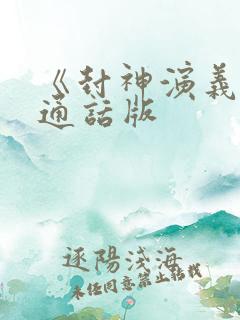 《封神演義
通話版
逐陽淺海
未经同意禁止转载